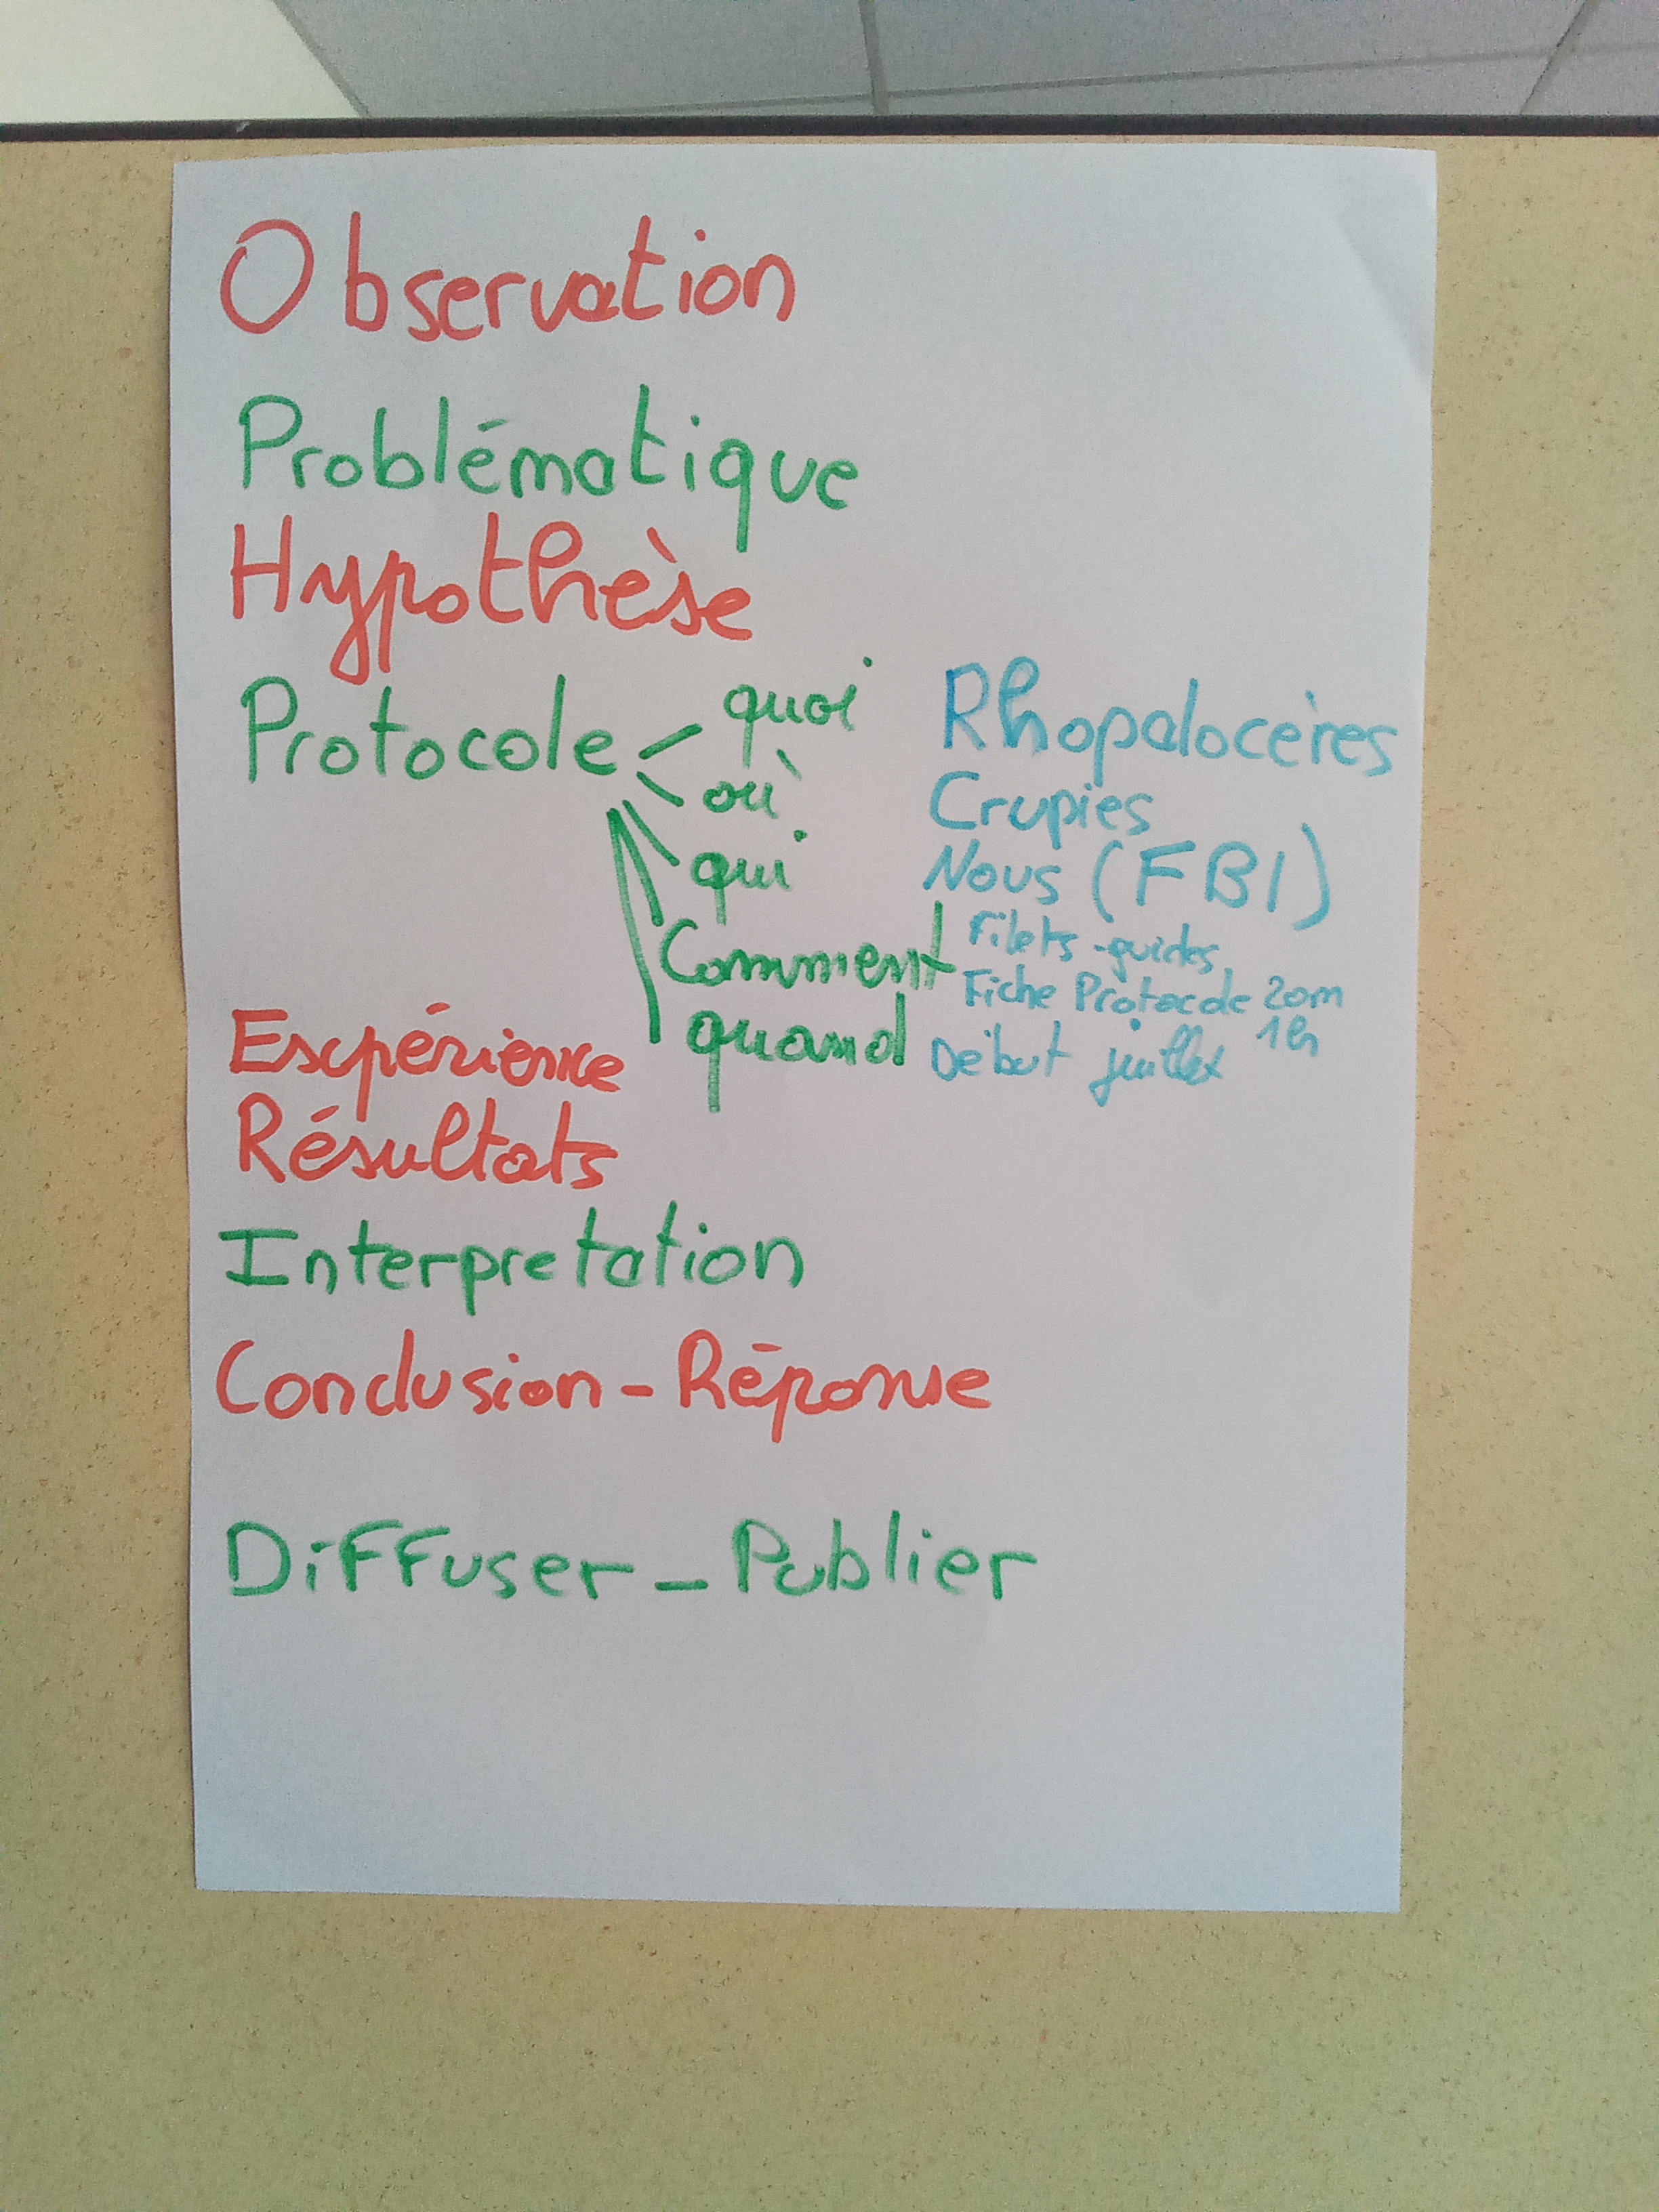 Observation
Problématique
Hypothèse
Protocole quoi Rhopalocères
où Crupies
qui Nous (FBI)
Comment Filets-guides
Fiche Protocole 20m
quand Début juillet 1h
Expérience
Résultats
Interpretation
Conclusion-Réponse
Diffuser-Publier